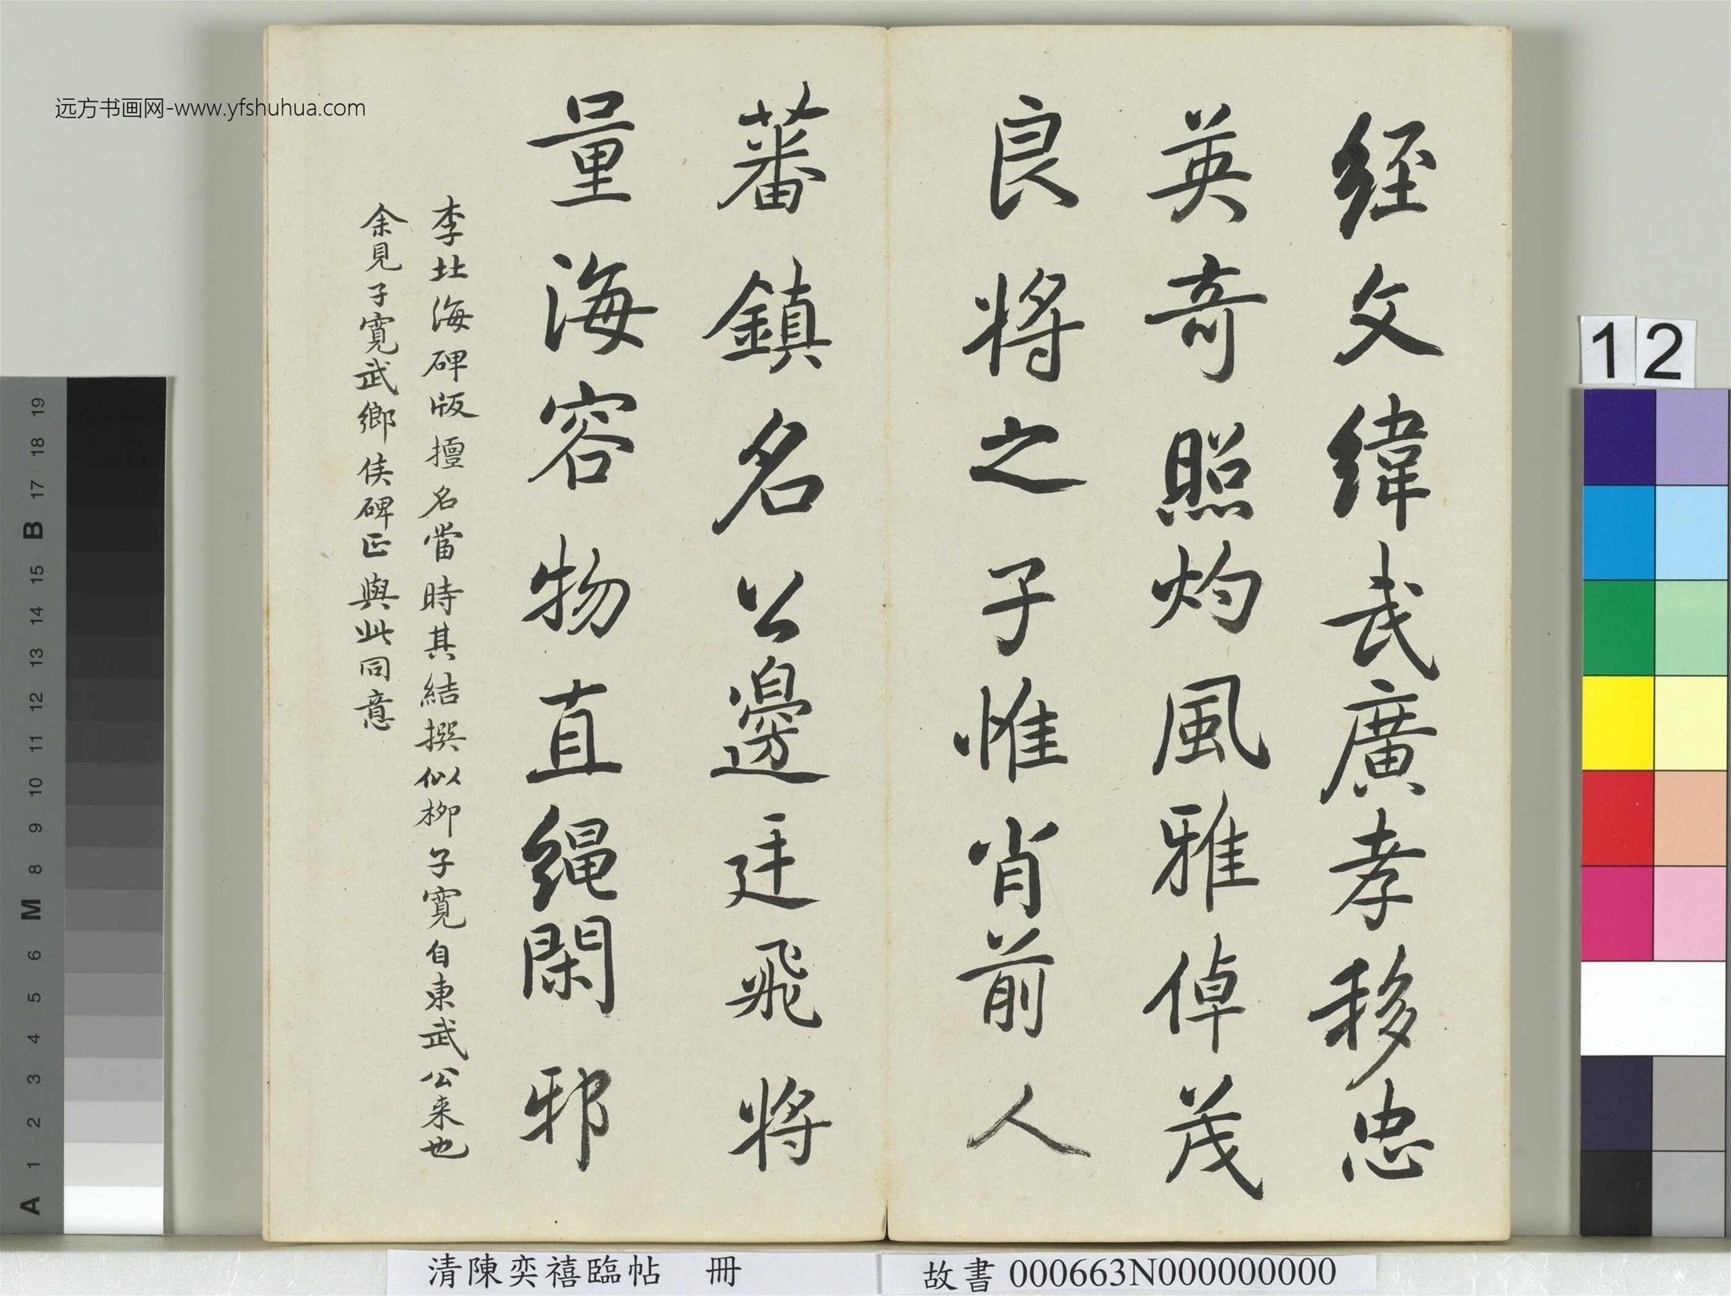 远方书画网-www.yfshuhua.com
経文緯武廣孝移忠
英奇照灼風雅倬茂
良將之子惟肖前人
蕃鎮名公邊廷飛將
量海容物直繩閑邪
李北海碑版擅名當時其結撰似柳子寬自東武公来也
余見子寬武鄉侯碑正與此同意
12
A 1 2 3 4 5 6 M 8 9 10 11 12 13 14 15 B 17 18 19
清陳奕禧臨帖 冊
故書 000663N000000000